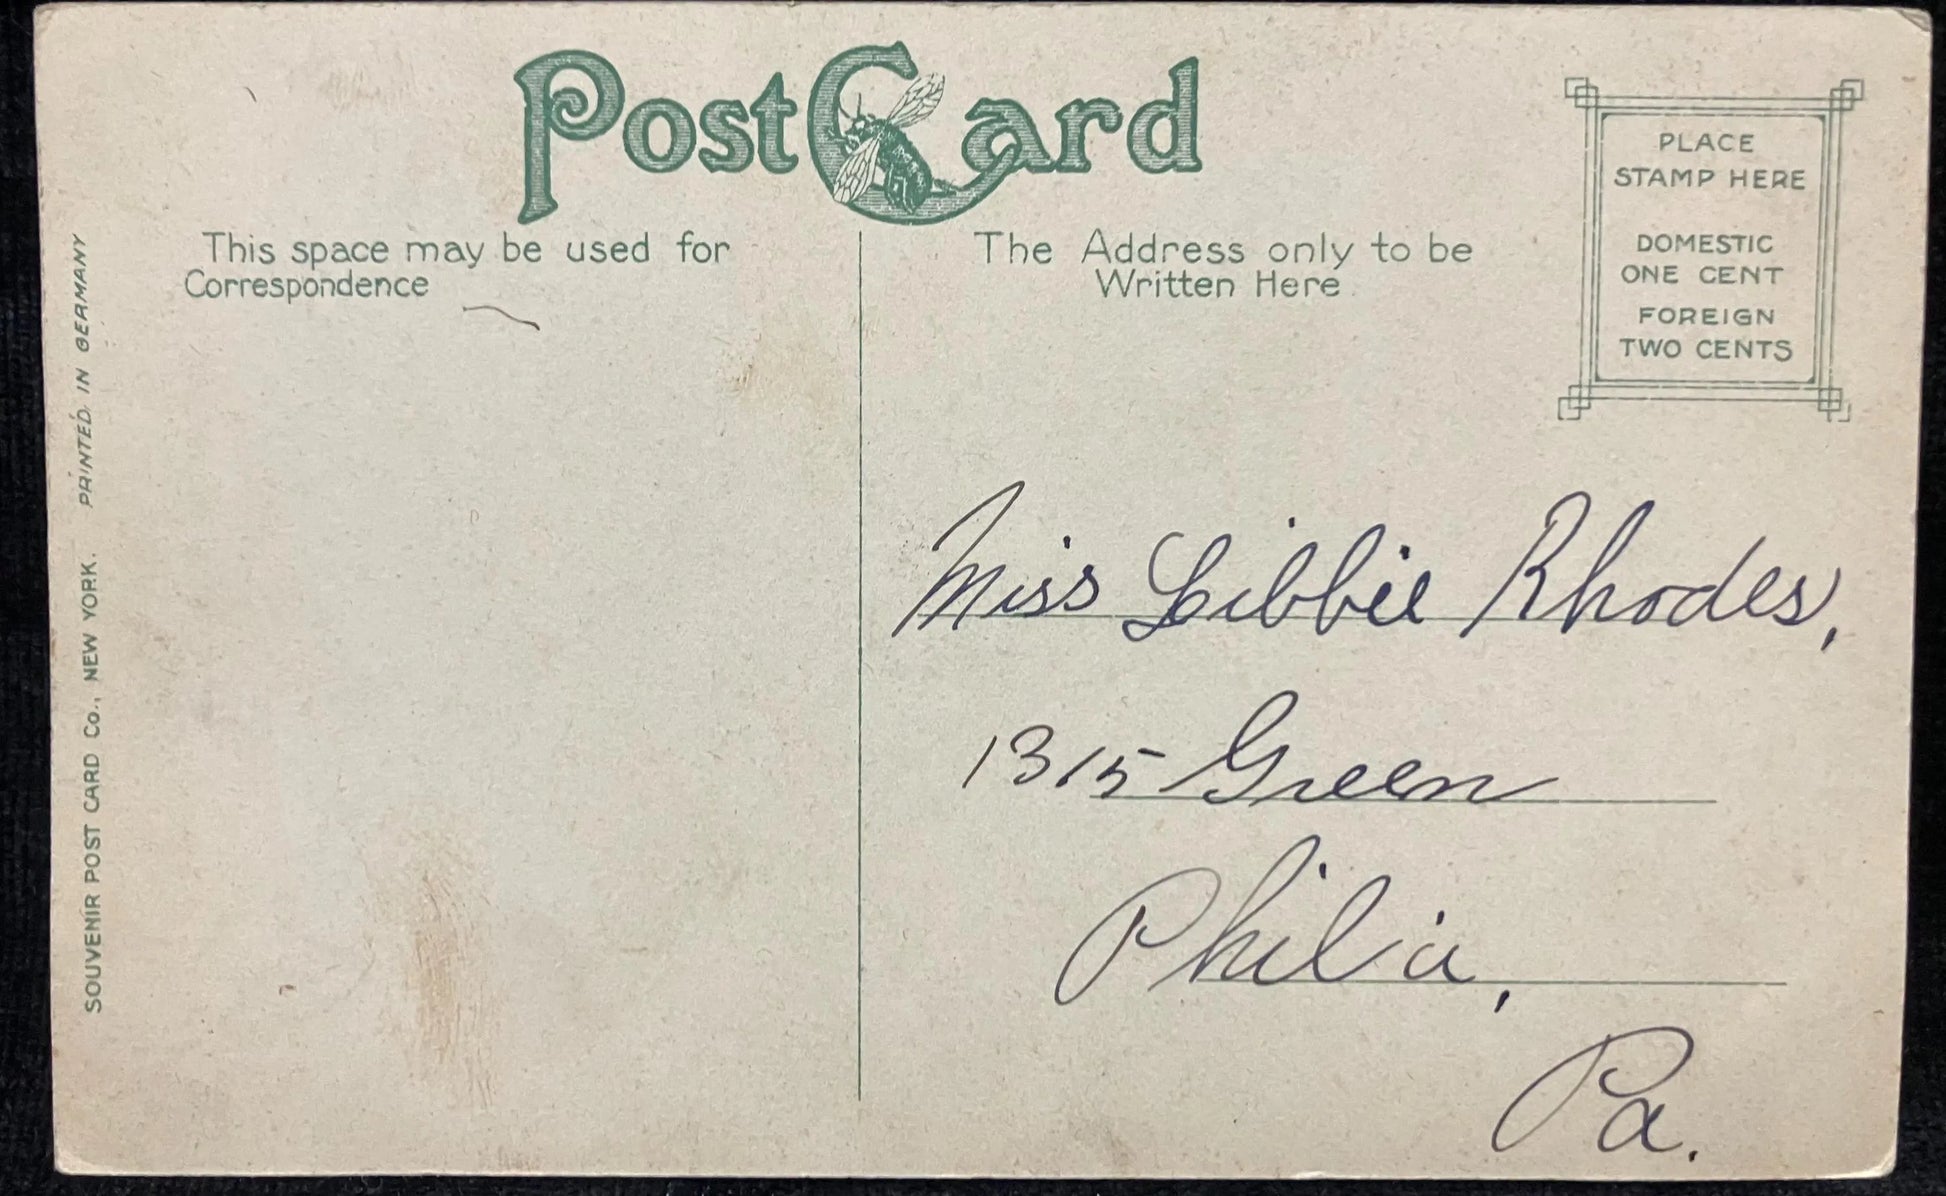 Post Card
This space may be used for
Correspondence
The Address only to be
Written Here
PLACE
STAMP HERE
DOMESTIC
ONE CENT
FOREIGN
TWO CENTS
Miss Libbie Rhodes,
1315 Green
Phil'a,
Pa.
SOUVENIR POST CARD Co., NEW YORK. PRINTED IN GERMANY